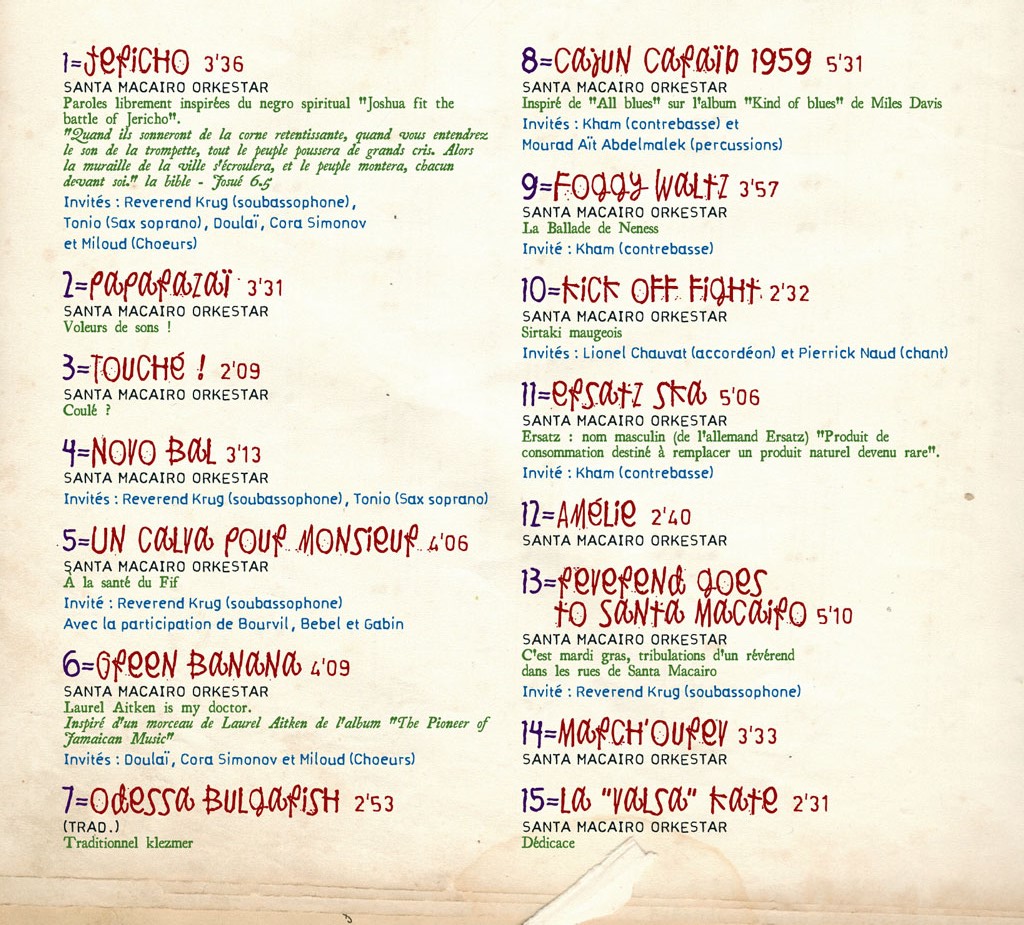 1=Jericho 3'36
SANTA MACAIRO ORKESTAR
Paroles librement inspirées du negro spiritual "Joshua fit the
battle of Jericho".
"Quand ils sonneront de la corne retentissante, quand vous entendrez
le son de la trompette, tout le peuple poussera de grands cris. Alors
la muraille de la ville s'écroulera, et le peuple montera, chacun
devant soi." la bible - Josué 6.5
Invités : Reverend Krug (soubassophone),
Tonio (Sax soprano), Doulaï, Cora Simonov
et Miloud (Choeurs)
2=Paparazaï 3'31
SANTA MACAIRO ORKESTAR
Voleurs de sons !
3=Touché ! 2'09
SANTA MACAIRO ORKESTAR
Coulé ?
4=Novo Bal 3'13
SANTA MACAIRO ORKESTAR
Invités : Reverend Krug (soubassophone), Tonio (Sax soprano)
5=Un calva pour Monsieur 4'06
SANTA MACAIRO ORKESTAR
A la santé du Fif
Invité : Reverend Krug (soubassophone)
Avec la participation de Bourvil, Bebel et Gabin
6=Green Banana 4'09
SANTA MACAIRO ORKESTAR
Laurel Aitken is my doctor.
Inspiré d'un morceau de Laurel Aitken de l'album "The Pioneer of
Jamaican Music"
Invités : Doulaï, Cora Simonov et Miloud (Choeurs)
7=Odessa Bulgarish 2'53
(TRAD.)
Traditionnel klezmer
8=Cajun Caraïb 1959 5'31
SANTA MACAIRO ORKESTAR
Inspiré de "All blues" sur l'album "Kind of blues" de Miles Davis
Invités : Kham (contrebasse) et
Mourad Aït Abdelmalek (percussions)
9=Foggy Waltz 3'57
SANTA MACAIRO ORKESTAR
La Ballade de Neness
Invité : Kham (contrebasse)
10=Kick Off Fight 2'32
SANTA MACAIRO ORKESTAR
Sirtaki maugeois
Invités : Lionel Chauvat (accordéon) et Pierrick Naud (chant)
11=Ersatz Ska 5'06
SANTA MACAIRO ORKESTAR
Ersatz : nom masculin (de l'allemand Ersatz) "Produit de
consommation destiné à remplacer un produit naturel devenu rare".
Invité : Kham (contrebasse)
12=Amélie 2'40
SANTA MACAIRO ORKESTAR
13=Reverend goes
to Santa Macairo 5'10
SANTA MACAIRO ORKESTAR
C'est mardi gras, tribulations d'un révérend
dans les rues de Santa Macairo
Invité : Reverend Krug (soubassophone)
14=March'ourev 3'33
SANTA MACAIRO ORKESTAR
15=La "Valsa" Kate 2'31
SANTA MACAIRO ORKESTAR
Dédicace